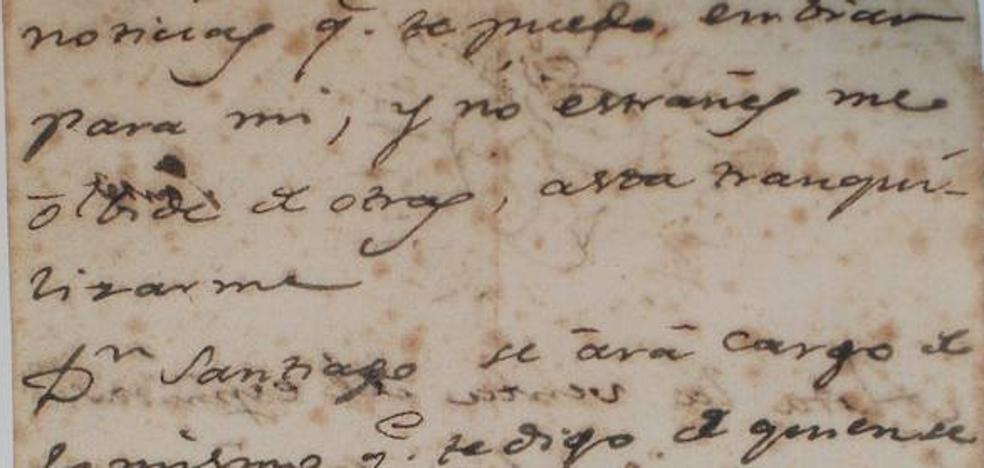 noticias q. te puedo embiar
para mi, y nó estrañes me
ōlbide de otras, asta tranqui-
lizarme
Dn Santiago se ārā cargo de
lo mismo q. te digo de quien se